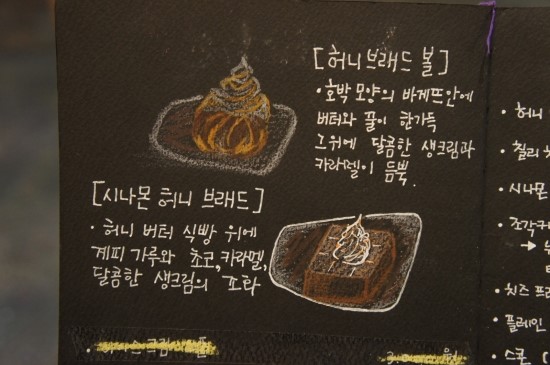 [허니브래드 볼]
• 호박 모양의 바게뜨안에
버터와 꿀이 한가득
그위에 달콤한 생크림과
카라멜이 듬뿍.
[시나몬 허니 브래드]
• 허니 버터 식빵 위에
계피 가루와 초코, 카라멜,
달콤한 생크림의 조화
• 허니
• 칠리
• 시나몬
• 조각
• 치즈 프
• 플레인
• 스콘